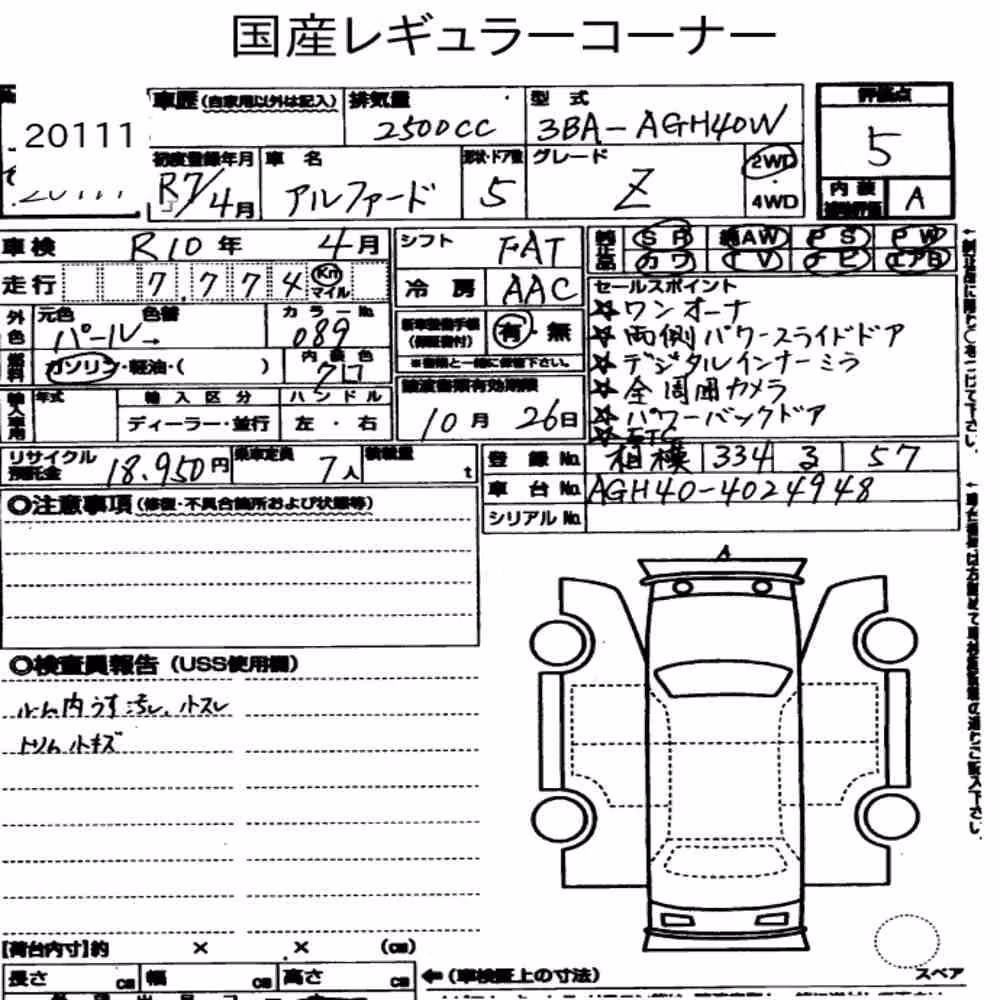 国産レギュラーコーナー
20111
車歴(自家用以外は記入)
排気量
2500CC
型式
3BA-AGH40W
評価点
5
初度登録年月
R7/4月
車名
アルファード
形状・ドア数
5
グレード
Z
2WD
・
4WD
内装
補助評価
A
車検 R10年 4月
シフト FAT
純正品 SR 純AW PS PW
カワ TV ナビ エアB
走行 7,774 Km マイル
冷房 AAC
セールスポイント
☆ワンオーナ
☆両側パワースライドドア
☆デジタルインナーミラ
☆全周囲カメラ
☆パワーバックドア
☆ETC
外色 元色 色替 カラーNo.
パール→ 089
新車整備手帳(保証書付) 有・無
※書類と一緒に保管下さい。
燃料 ガソリン・軽油・( )
内装色
クロ
譲渡書類有効期限
10月 26日
輸入車用 年式 輸入区分 ハンドル
ディーラー・並行 左・右
リサイクル預託金 18,950円 乗車定員 7人 積載量 t
登録No. 相模 334 る 57
車台No. AGH40-4024948
シリアルNo.
◎注意事項(修復・不具合箇所および状態等)
◎検査員報告(USS使用欄)
ルーム内うす汚レ、小スレ
トリム小キズ
A
[荷台内寸]約 × × (cm)
長さ cm 幅 cm 高さ cm
←(車検証上の寸法)
スペア